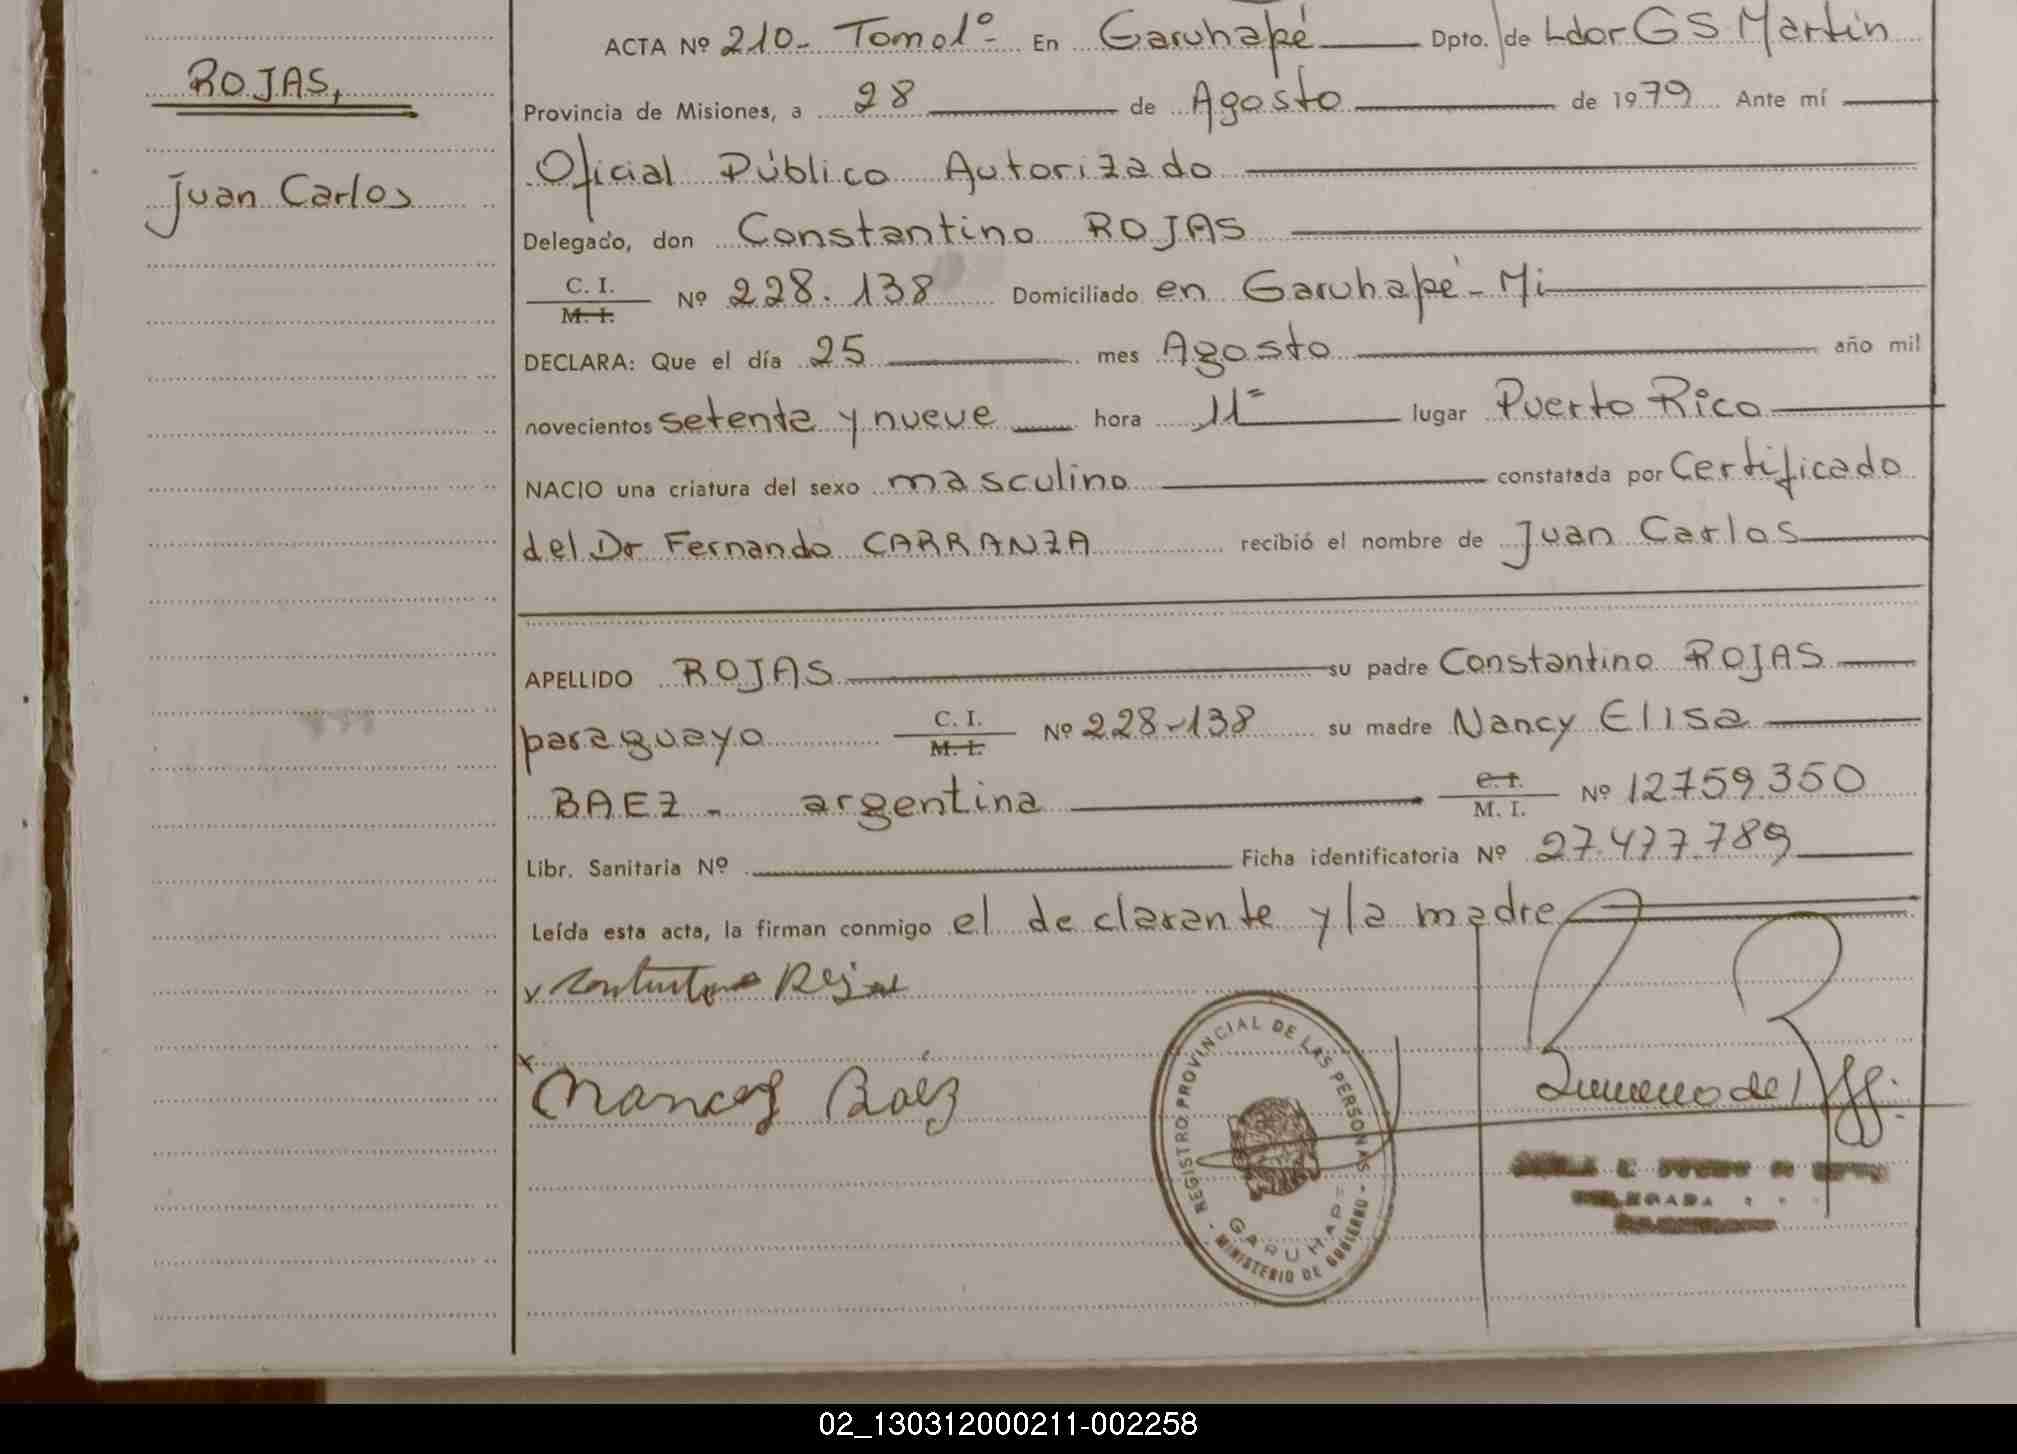 ROJAS,
Juan Carlos
ACTA Nº 210- Tomo 1º- En Garuhapé Dpto. de Ldor G S Martin
Provincia de Misiones, a 28 de Agosto de 1979 Ante mí
Oficial Público Autorizado
Delegado, don Constantino ROJAS
C. I.
M. I.
Nº 228.138 Domiciliado en Garuhapé-Mi
DECLARA: Que el día 25 mes Agosto año mil
novecientos setenta y nueve hora 11= lugar Puerto Rico
NACIO una criatura del sexo masculino constatada por Certificado
del Dr Fernando CARRANZA recibió el nombre de Juan Carlos
APELLIDO ROJAS su padre Constantino ROJAS
paraguayo C. I. M. I. Nº 228-138 su madre Nancy Elisa
BAEZ - argentina C. I. M. I. Nº 12759350
Libr. Sanitaria Nº Ficha identificatoria Nº 27.477.789
Leída esta acta, la firman conmigo el declarante y la madre
x Rojas
x Nancy Báez
REGISTRO PROVINCIAL DE LAS PERSONAS
GARUHAPE
MINISTERIO DE GOBIERNO
02_130312000211-002258